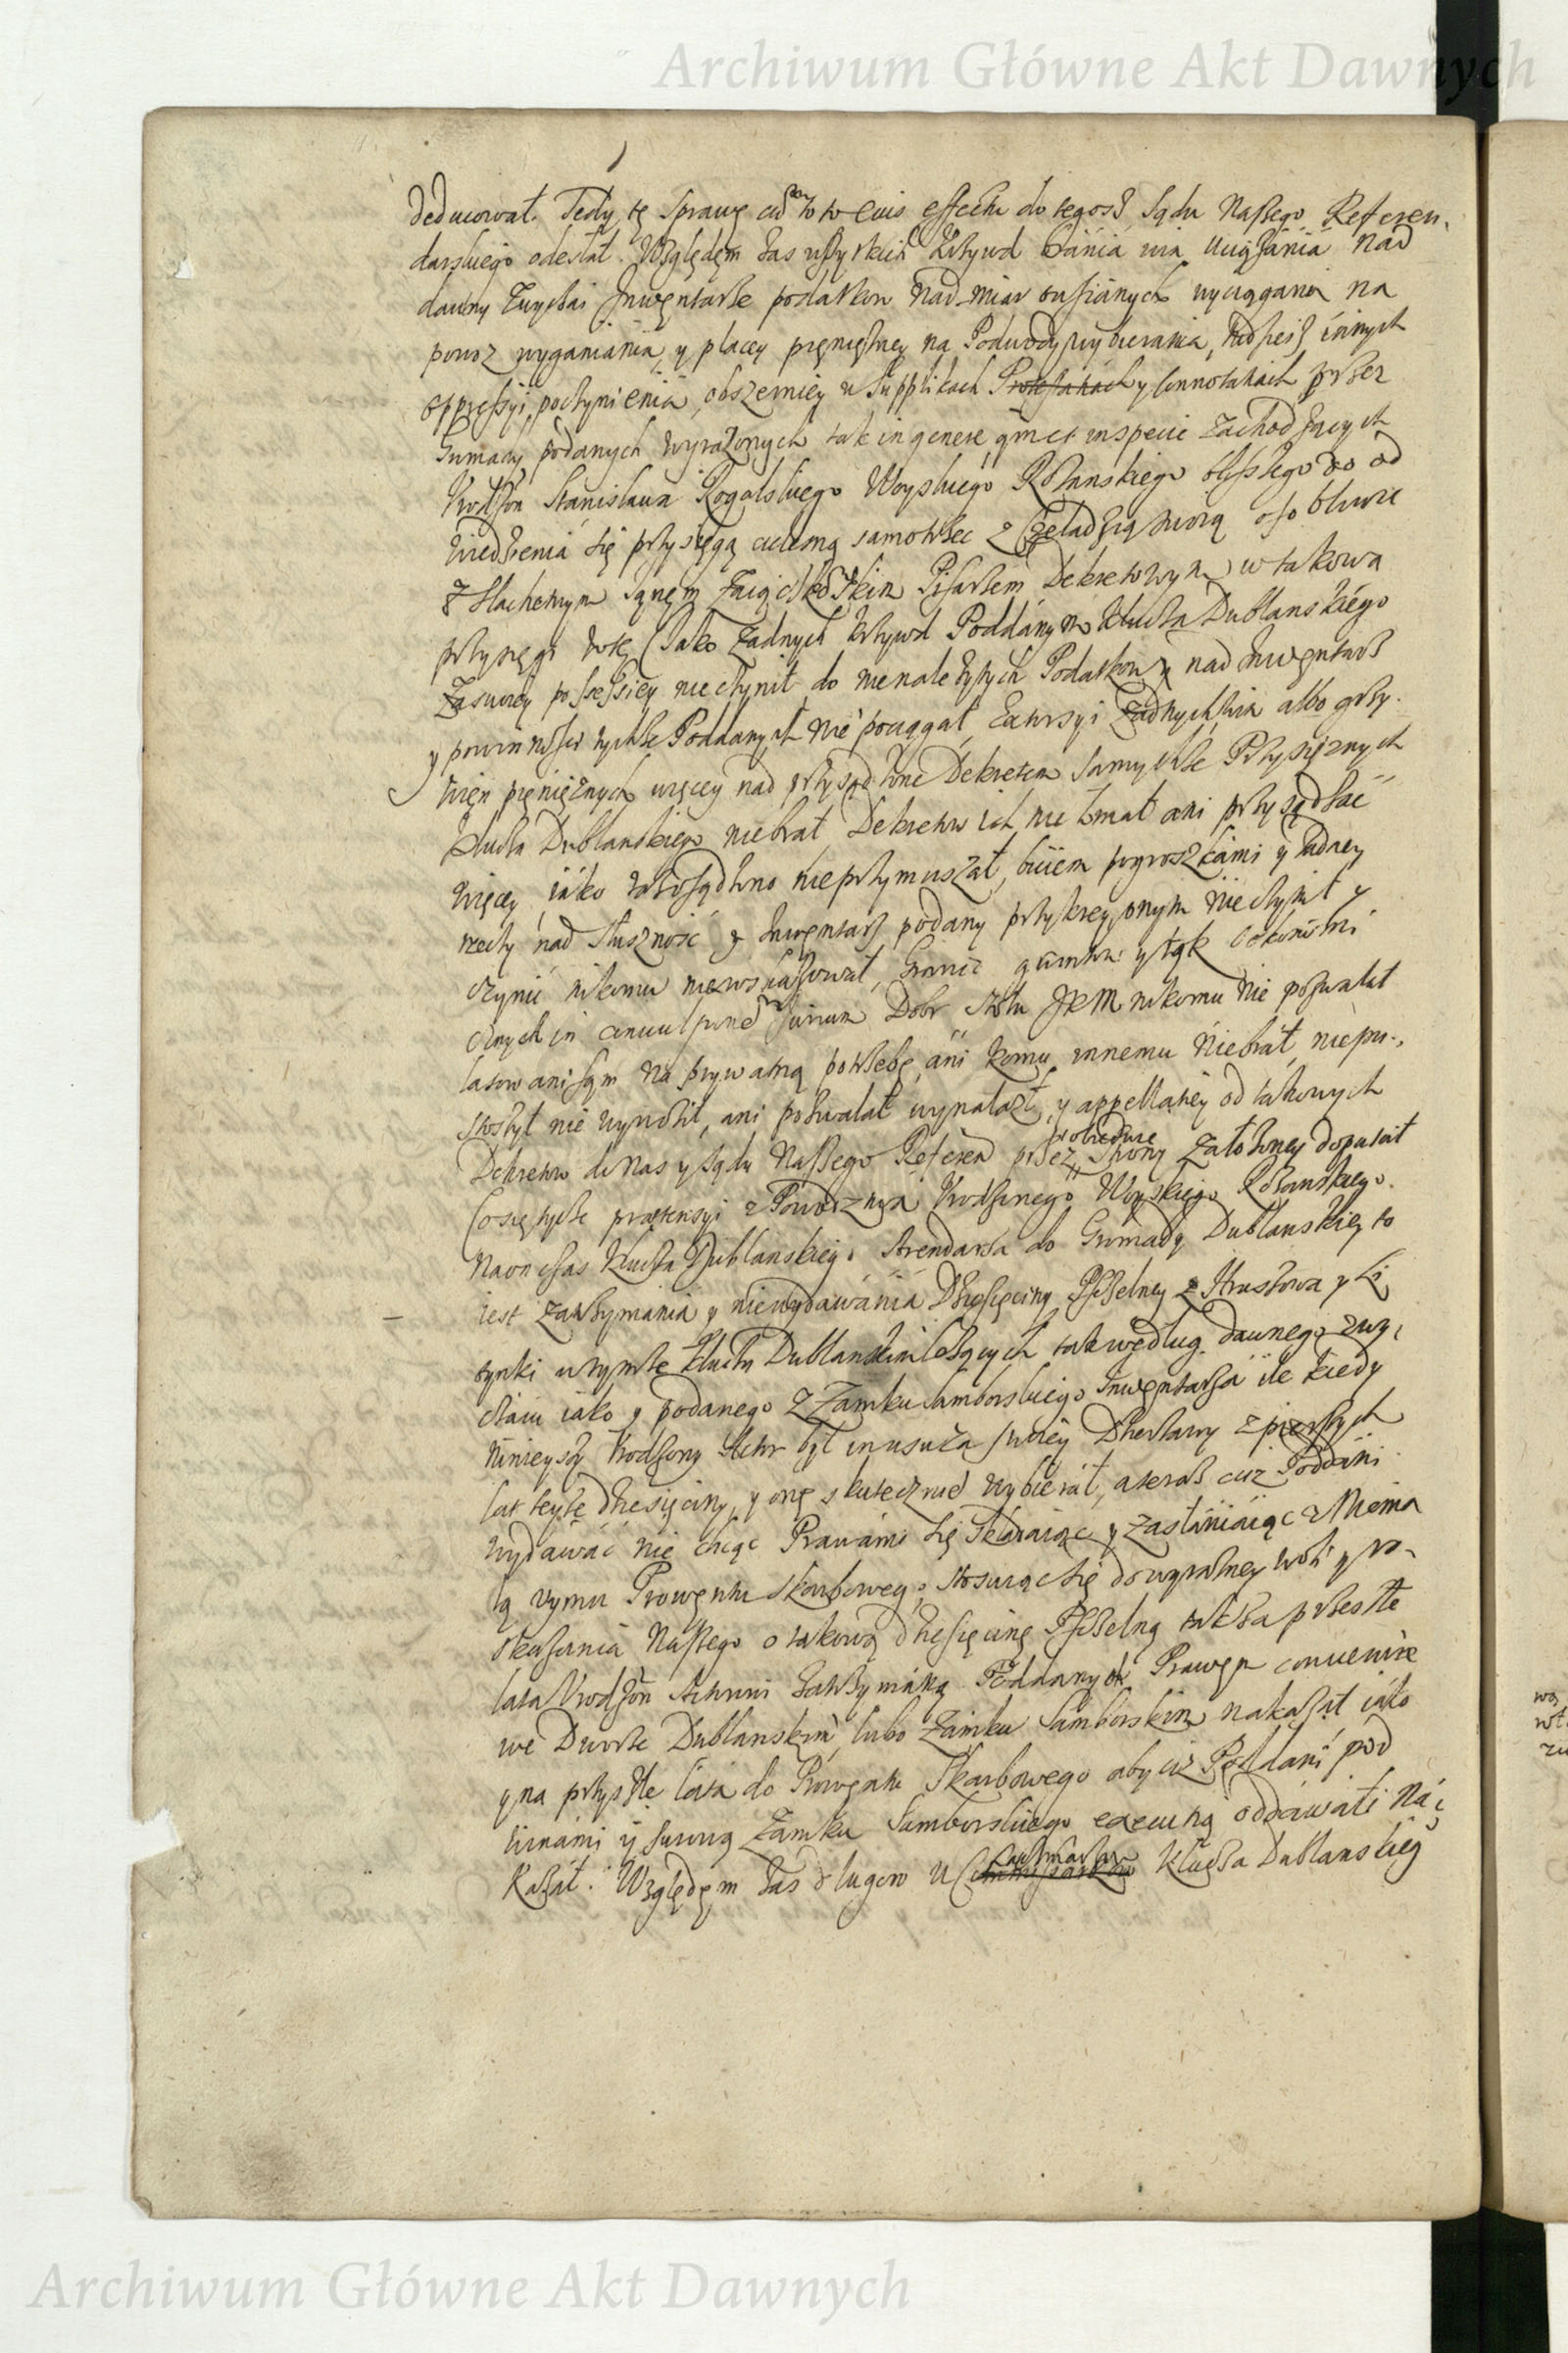 Archiwum Główne Akt Dawnych
deducował. Tedy tę Sprawę cum toto eius effectu do tegosz Sądu Naszego Referen-
darskiego odesłał. Względem zas wszystkich krzywd uciążania nad
dawny zwyczai Inwentarze podatkow nad miar wyciągania na
powoz wyganiania, y płacey pięniężney na Podwody wybierania, tudziesz innych
oppressyi, poczynienia, obszerniey w Supplikach Protestatiach y Connotatiach przez
Gromady podanych wyrażonych tak in genere, qm et in specie zachodzących
Vrodzon Stanisława Rogalskiego Woyskiego Rożanskiego bliszszego do od
wiedzenia się przysięgą cielesną samotrzec z Czeladzią swoią osobliwie
z Slachetnym Pisarzem Dekretowym w takową
przysięgi rotę (Jako żadnych krzywd Poddanym klucza Dublanskiego
za swoiey possessiey nieczynił, do nienależytych Podatkow nad Inwentarz
y powinności tychze Poddanych nie pociągał, Extorsyi żadnych win albo grzy-
wien pieniężnych więcey nad przysądzone Dekretem samychże Przysiężnych
klucza Dublanskiego niebrał, Dekretow ich nie łmał ani przysądzac
więcey iako nieprzymuszał, biciem pogroszkami y żadney
rzeczy nad słuszność y Inwentarz podany przykrey onym nieczynił y
czynic nikomu nierozkazował, Granic y tąk
Dobr stołu JKM nikomu nie pozwalał
lasow ani sąm na prywatną potrzebę, ani komu innemu niebrał, niepu-
stoszył nie wyrobił, ani pozwalał wynalazł, y appellatiey od takowych
Dekretow do Nas y Sądu Naszego Referen przez obiedwie Strony założoney dopuścił
Co się tycze prætensyi z Powodztwa Vrodzonego Woyskiego Rożanskiego.
Naonczas klucza Dublanskiego Arendarza do Gromady Dublanskiey to
iest zatrzymania y niewydawania Dziesięciny Pszczelney z Hruszowa y Li
tynki w tymże kluczu Dublanskim leżących tak według dawnego zwy-
czaiu iako y podanego z Zamku Samborskiego Inwentarza ile kiedy
ninieyszy Vrodzony Actor był in usu za swoiey Dzierżawy z pierszych
lat teyże dziesięciny, y onę skutecznie wybierał, a teraz ciż Poddani
wydawać nie chcąc Prawami się y zastaniaiąc z Niema
łą vymu Prowentu skarbowego, stosuiąc się do wyraźney woli y ro-
skazania Naszego o takową dziesięcinę Pszczelną tak za przeszłe
lata Vrodzon Actorowi zatrzymaną Poddanych Prawem convenire
we Dworze Dublanskim lubo Zamku Samborskim nakazał iako
y na przyszłe lata do Prowentu Skarbowego aby ciż Poddani pod
winami y surową Zamku Samborskiego executią oddawali Na-
kazał. Względem zas długow u klucza Dublanskieg
Archiwum Główne Akt Dawnych